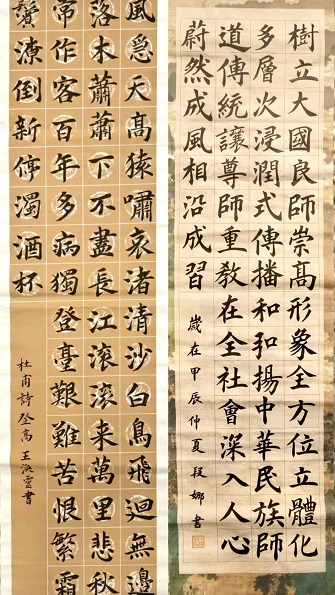 樹立大國良師崇高形象全方位立體化
多層次浸潤式傳播和和揚中華民族師
道傳統讓尊師重教在全社會深入人心
蔚然成風相沿成習
歲在甲辰仲夏段娜書
風急天高猿嘯哀渚清沙白鳥飛迴無邊
落木蕭蕭下不盡長江滾滾来萬里悲秋
常作客百年多病獨登臺艱難苦恨繁霜
鬢潦倒新停濁酒杯
杜甫詩登高王書